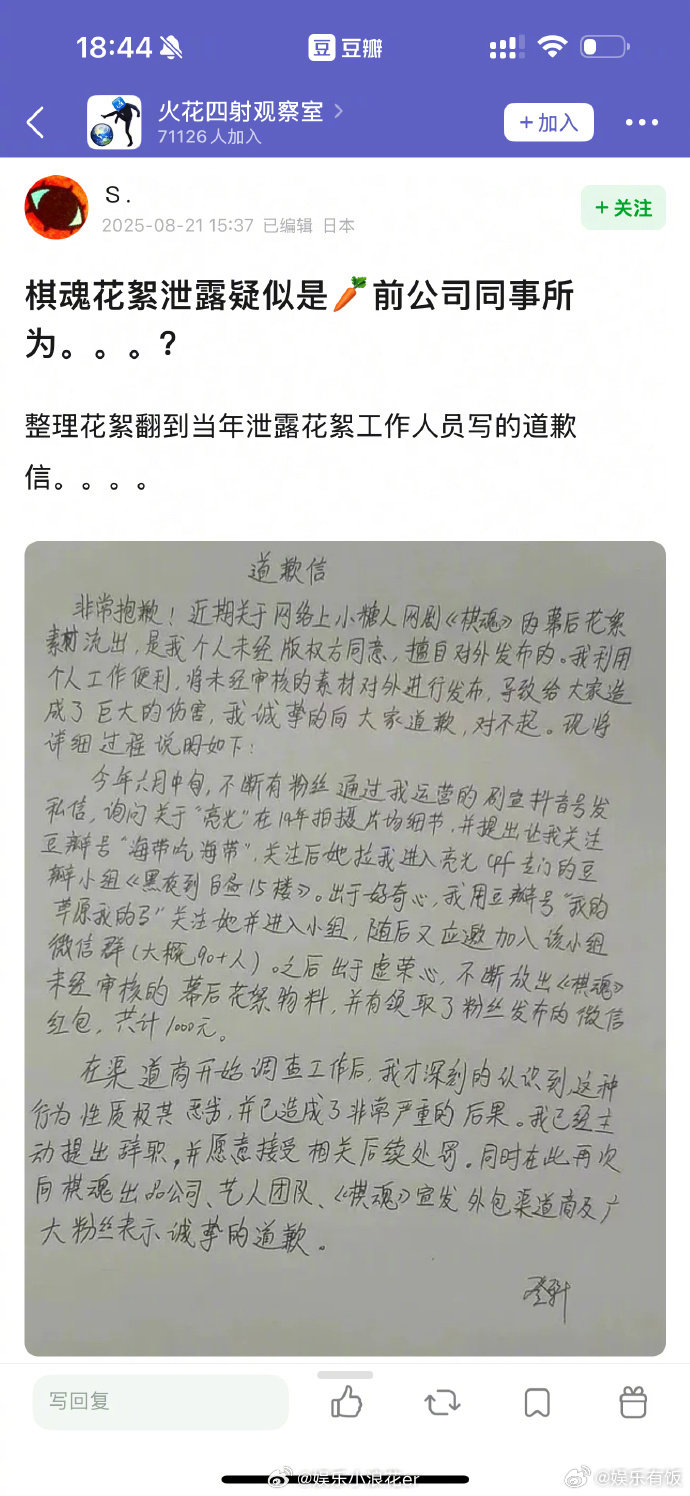 18:44
豆 豆瓣
火花四射观察室
71126人加入
+加入
S .
2025-08-21 15:37 已编辑 日本
+关注
棋魂花絮泄露疑似是🥕前公司同事所
为。。。?
整理花絮翻到当年泄露花絮工作人员写的道歉
信。。。。
道歉信
非常抱歉！近期关于网络上小糖人网剧《棋魂》的幕后花絮
素材流出，是我个人未经版权方同意，擅自对外发布的。我利用
个人工作便利，将未经审核的素材对外进行发布，导致给大家造
成了巨大的伤害，我诚挚的向大家道歉，对不起。现将
详细过程说明如下：
今年六月中旬，不断有粉丝通过我运营的剧宣抖音号发
私信，询问关于"亮光"在19年拍摄片场细节，并提出让我关注
豆瓣号"海带吃海带"，关注后她拉我进入亮光cp专门的豆
瓣小组《黑夜到白昼15楼》。出于好奇心，我用豆瓣号"我的
草原我的马"关注她并进入小组，随后又应邀加入该小组
微信群(大概90+人)。之后出于虚荣心，不断放出《棋魂》
未经审核的幕后花絮物料，并有领取了粉丝发布的微信
红包，共计1000元。
在渠道商开始调查工作后，我才深刻的认识到，这种
行为性质极其恶劣，并已造成了非常严重的后果。我已经主
动提出辞职，并愿意接受相关后续处罚。同时在此再次
向棋魂出品公司、艺人团队、《棋魂》宣发外包渠道商及广
大粉丝表示诚挚的道歉。
写回复
@娱乐小浪花er
@娱乐有饭